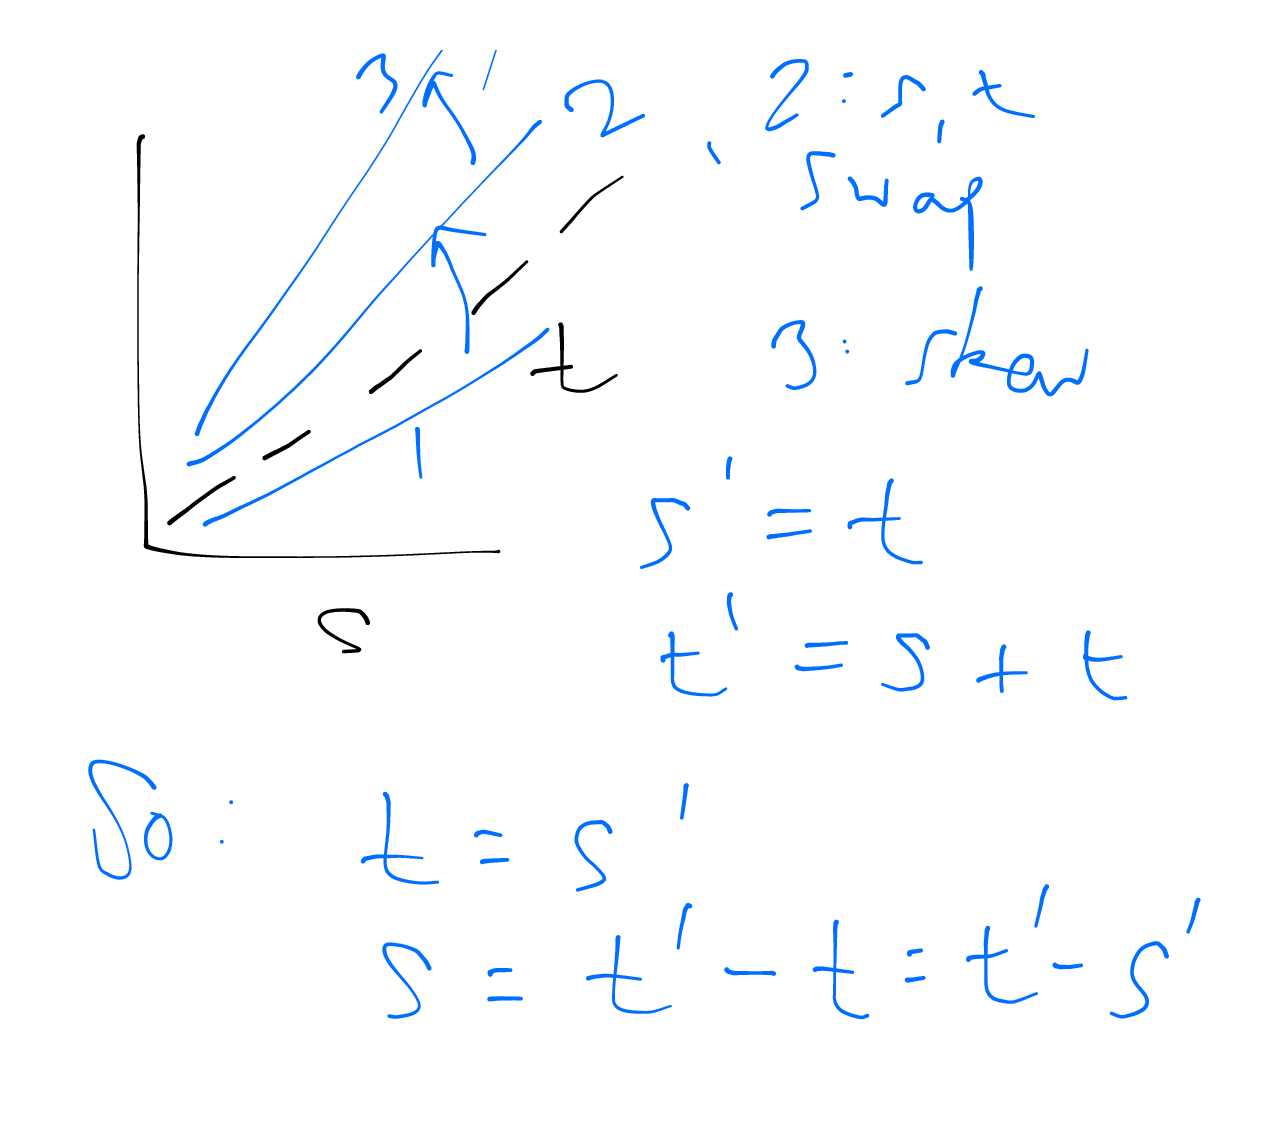 3
2
t
1
s
2: s, t
swap
3: skew
s' = t
t' = s + t
So: t = s'
s = t' - t = t' - s'